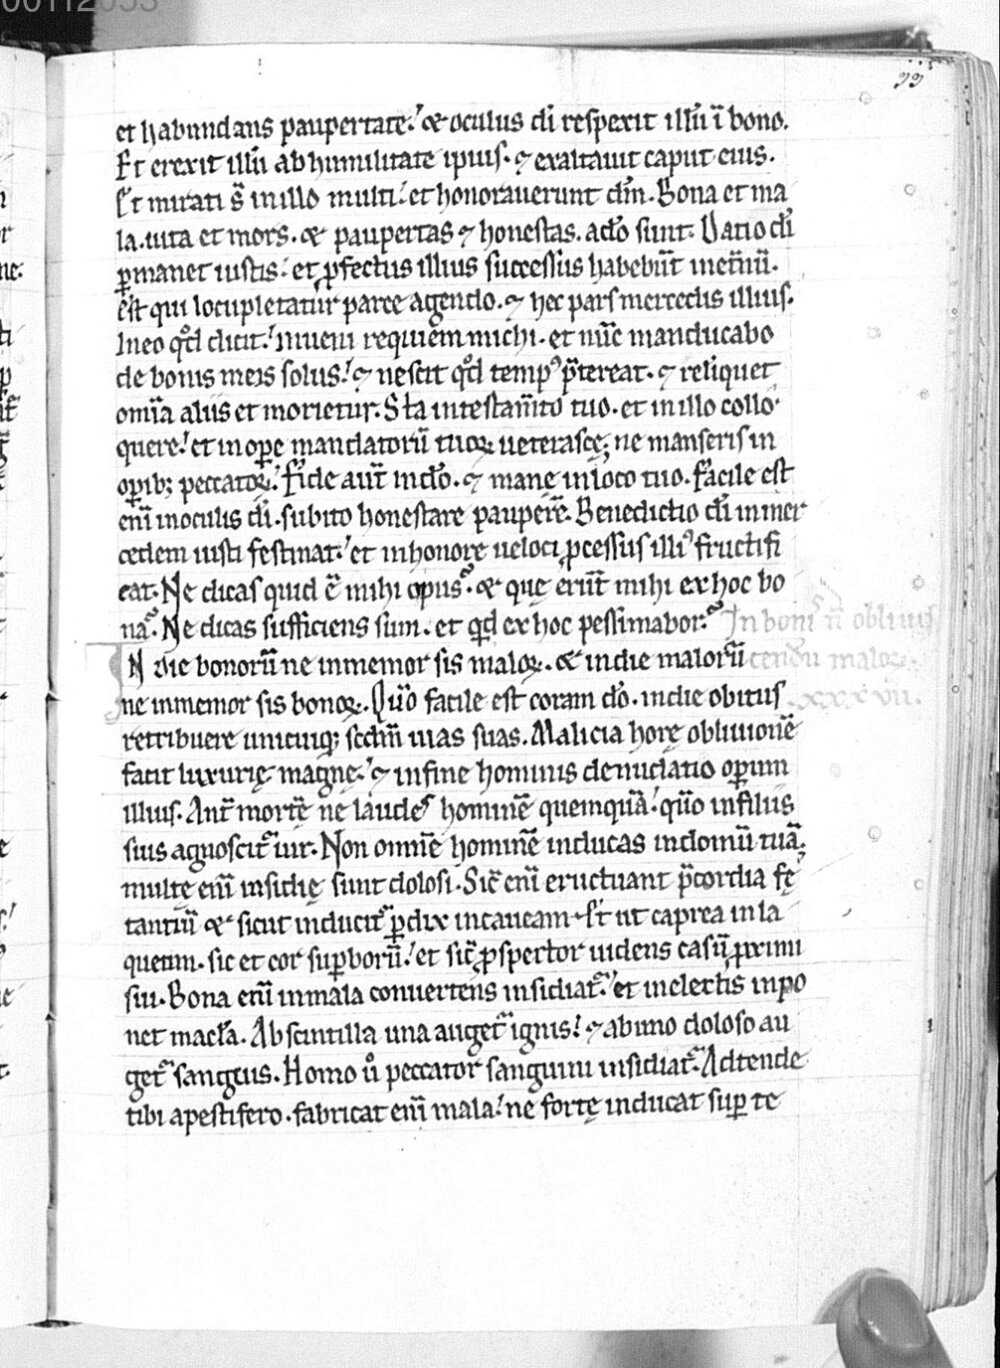 00112053
99
et habundans paupertate. ⁊ oculus di̅ respexit illu̅ i̅ bono.
Et erexit illu̅ ab humilitate ipius. ⁊ exaltauit caput eius.
Et mirati s̅ in illo multi. et honorauerunt dm̅. Bona et ma
la. uita et mors. ⁊ paupertas ⁊ honestas. ado̅ sunt. Datio di̅
p̱manet iustis. et p̱fectus illius successus habebu̅t inet̅nu̅.
est qui locupletatur parce agendo. ⁊ hec pars mercedis illius.
In eo qd̅ dicit. inueni requiem michi. et nu̅c manducabo
de bonis meis solus. ⁊ nescit qd̅ tempꝰ p̅tereat. ⁊ reliquet
om̅ia aliis et morietur. Sta in testam̅to tuo. et in illo collo
quere. et in op̱e mandatoru̅ tuoꝝ ueterasce, ne manseris in
op̱ibꝫ peccatoꝝ. fide aut̅ in do̅. ⁊ mane in loco tuo. facile est
eni̅ in oculis di̅. subito honestare paupere̅. Benedictio di̅ in mer
cedem iusti festinat. et in honore ueloci ꝓcessus illiꝰ fructifi
cat. Ne dicas quid e̅ mihi opus. ⁊ que eru̅t mihi ex hoc bo
na. Ne dicas sufficiens sum. et qd̅ ex hoc pessimabor. In bonis n̅ obliuis
IN die bonoru̅ ne inmemor sis maloꝝ. ⁊ in die maloru̅ cendu̅ maloꝝ.
ne inmemor sis bonoꝝ. Quo̅ facile est coram do̅. in die obitus xxxvii.
retribuere unicuiqꝫ scd̅m uias suas. Malicia hore obliuione̅
facit luxurię magnę. ⁊ in fine hominis denudatio op̱um
illius. Ant̅ morte̅ ne laudes homine̅ quemqua̅. quo̅ in filiis
suis agnoscit᷑ uir. Non omne̅ homine̅ inducas in domu̅ tua̅.
multe eni̅ insidię sunt dolosi. Sic̅ eni̅ eructuant p̅cordia fę
tantiu̅ ⁊ sicut inducit᷑ p̱dix in caueam. s̅t ut caprea in la
queum. sic et cor sup̱boru̅. et sic̅ ꝓspector uidens casu̅ ꝓximi
sui. Bona eni̅ in mala conuertens insidiat᷑. et in electis inpo
net macl̅a. Ab scintilla una auget᷑ ignis. ⁊ ab uno doloso au
get᷑ sanguis. Homo u̅o peccator sanguini insidiat᷑. Adtende
tibi a pestifero. fabricat eni̅ mala. ne forte inducat sup̱ te